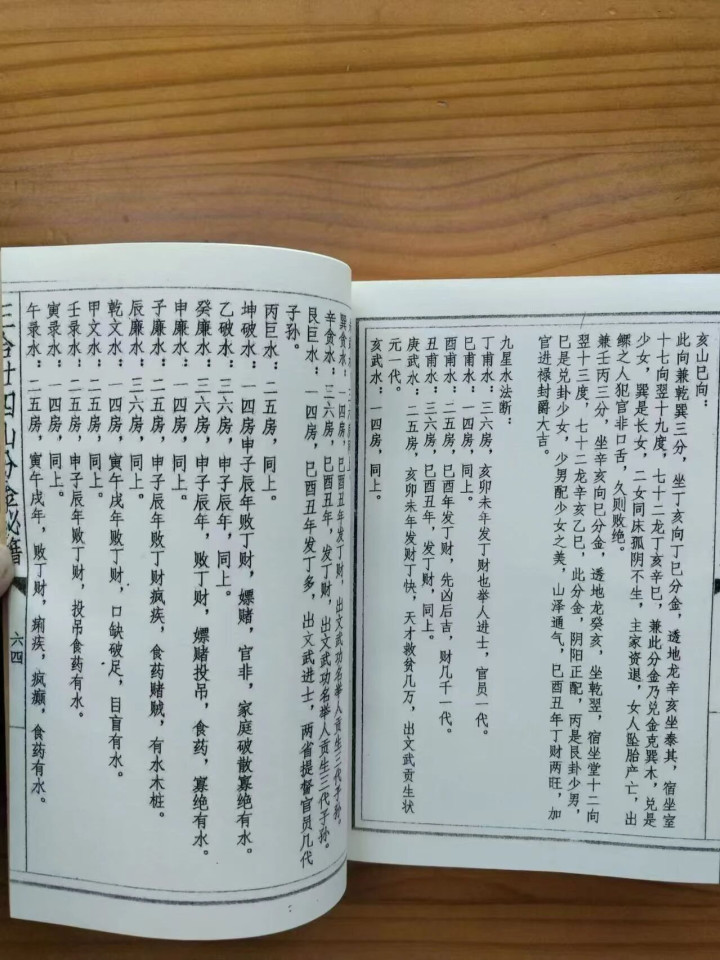 亥山巳向：
此向兼乾巽三分，坐丁亥向丁巳分金，透地龙辛亥坐泰其，宿坐室
十七向翌十九度，七十二龙丁亥辛巳，兼此分金乃兑金克巽木，兑是
少女，巽是长女，二女同床孤阴不生，主家资退，女人坠胎产亡，出
鳏之人犯官非口舌，久则败绝。
兼壬丙三分，坐辛亥向巳分金，透地龙癸亥，坐乾翌，宿坐堂十二向
翌十三度，七十二龙辛亥乙巳，此分金，阴阳正配，丙是艮卦少男，
巳是兑卦少女，少男配少女之美，山泽通气，巳酉丑年丁财两旺，加
官进禄封爵大吉。
九星水法断：
丁甫水：三六房，亥卯未年发丁财也举人进士，官员一代。
巳甫水：一四房，同上。
酉甫水：二五房，巳酉年发丁财，先凶后吉，财几千一代。
丑甫水：三六房，巳酉丑年，发丁财，同上。
庚武水：二五房，亥卯未年发财丁快，天才救贫几万，出文武贡生状
元一代。
亥武水：一四房，同上。
巽贪水：一四房，巳酉丑年发丁财，出文武功名举人贡生三代子孙。
辛贪水：三六房，巳酉丑年，发丁财，出文武功名举人贡生三代子孙。
艮巨水：一四房，巳酉丑年发丁多，出文武进士，两省提督官员几代
子孙。
丙巨水：二五房，同上。
坤破水：一四房申子辰年败丁财，嫖赌，官非，家庭破散寡绝有水。
乙破水：三六房，申子辰年，同上。
癸廉水：三六房，申子辰年，败丁财，嫖赌投吊，食药，寡绝有水。
申廉水：一四房，同上。
子廉水：二五房，申子辰年败丁财疯疾，食药赌贼，有水木桩。
辰廉水：三六房，同上。
乾文水：一四房，寅午戌年败丁财，口缺破足，目盲有水。
甲文水：二五房，同上。
壬录水：二五房，申子辰年败丁财，投吊食药有水。
寅录水：一四房，同上。
午录水：二五房，寅午戌年，败丁财，痢疾，疯癫，食药有水。
三合廿四山分金秘籍
六四